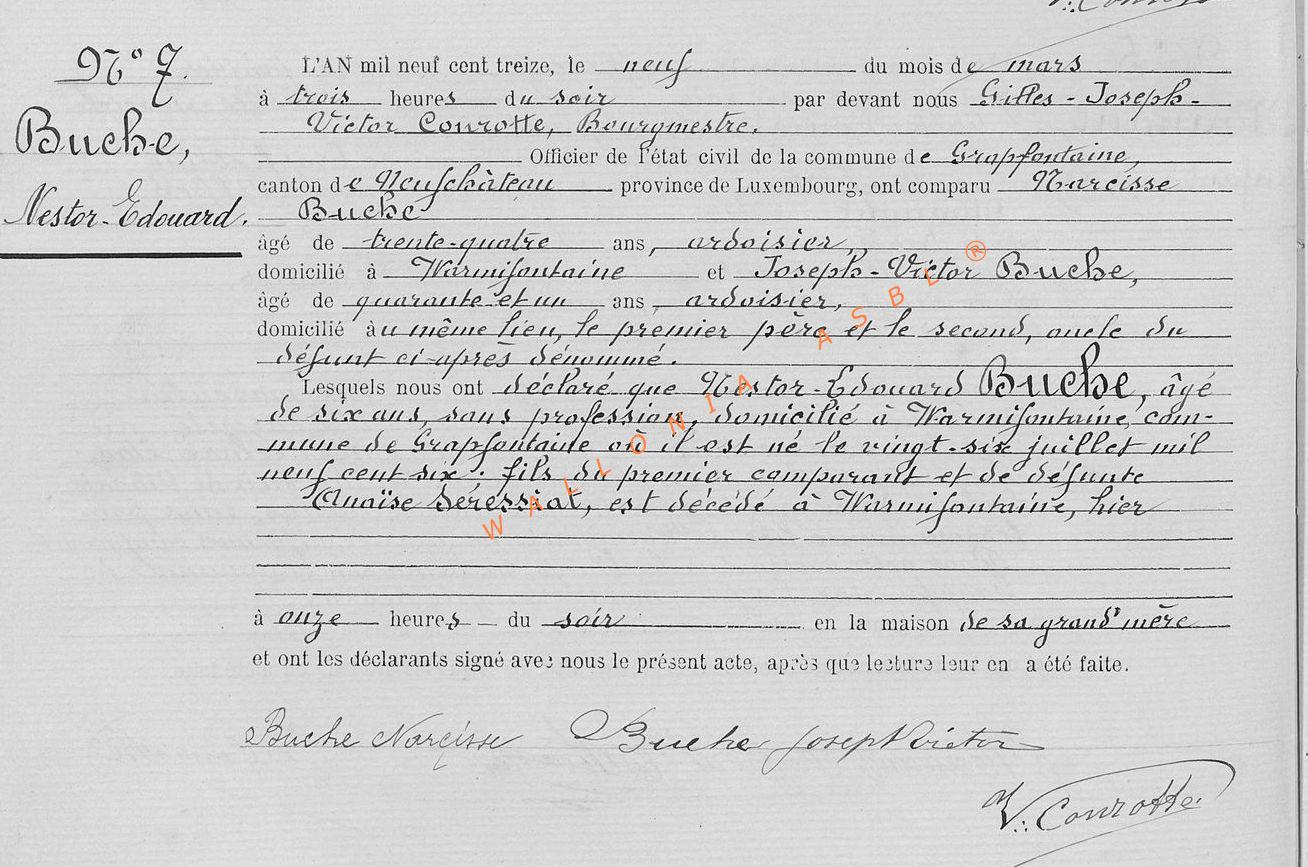 V. Conrotte
N° 7.
Buche,
Nestor-Edouard.
L'AN mil neuf cent treize, le neuf du mois de mars
à trois heures du soir par devant nous Gilles-Joseph-
Victor Conrotte, Bourgmestre,
Officier de l'état civil de la commune de Grapfontaine,
canton de Neufchâteau province de Luxembourg, ont comparu Narcisse
Buche
âgé de trente-quatre ans, ardoisier,
domicilié à Warmifontaine et Joseph-Victor Buche,
âgé de quarante et un ans, ardoisier,
domicilié au même lieu, le premier père et le second, oncle du
défunt ci-après dénommé.
Lesquels nous ont déclaré que Nestor-Edouard Buche, âgé
de six ans, sans profession, domicilié à Warmifontaine, com-
mune de Grapfontaine où il est né le vingt-six juillet mil
neuf cent six; fils du premier comparant et de défunte
Anaïse Séressiat, est décédé à Warmifontaine, hier
à onze heures du soir en la maison de sa grand'mère
et ont les déclarants signé avec nous le présent acte, après que lecture leur en a été faite.
Buche Narcisse Buche Joseph Victor
V. Conrotte
WALLONIA ASBL ®